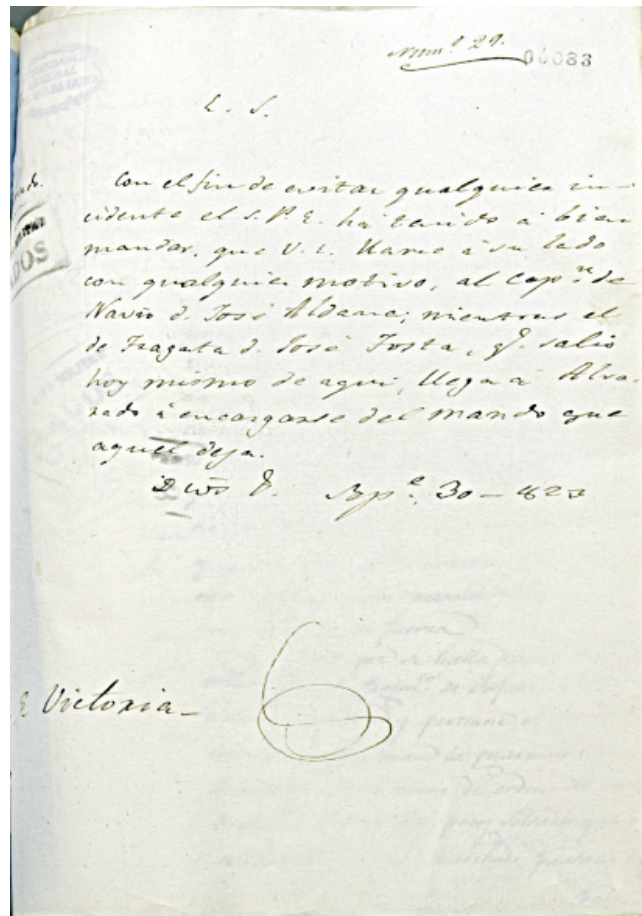 Num.º 29.
00083
E. S.
Con el fin de evitar qualquier in-
cidente el S.P.E. ha tenido á bien
mandar, que V.E. llame á su lado
con qualquier motivo, al Cap.n de
Navio d. José Aldana; mientras el
de Fragata d. José Tosta, q.e salió
hoy mismo de aqui, llega á Alva-
rado á encargarse del mando que
aquel deja.
Dios &. Sep.e 30 – 823
E Victoria –